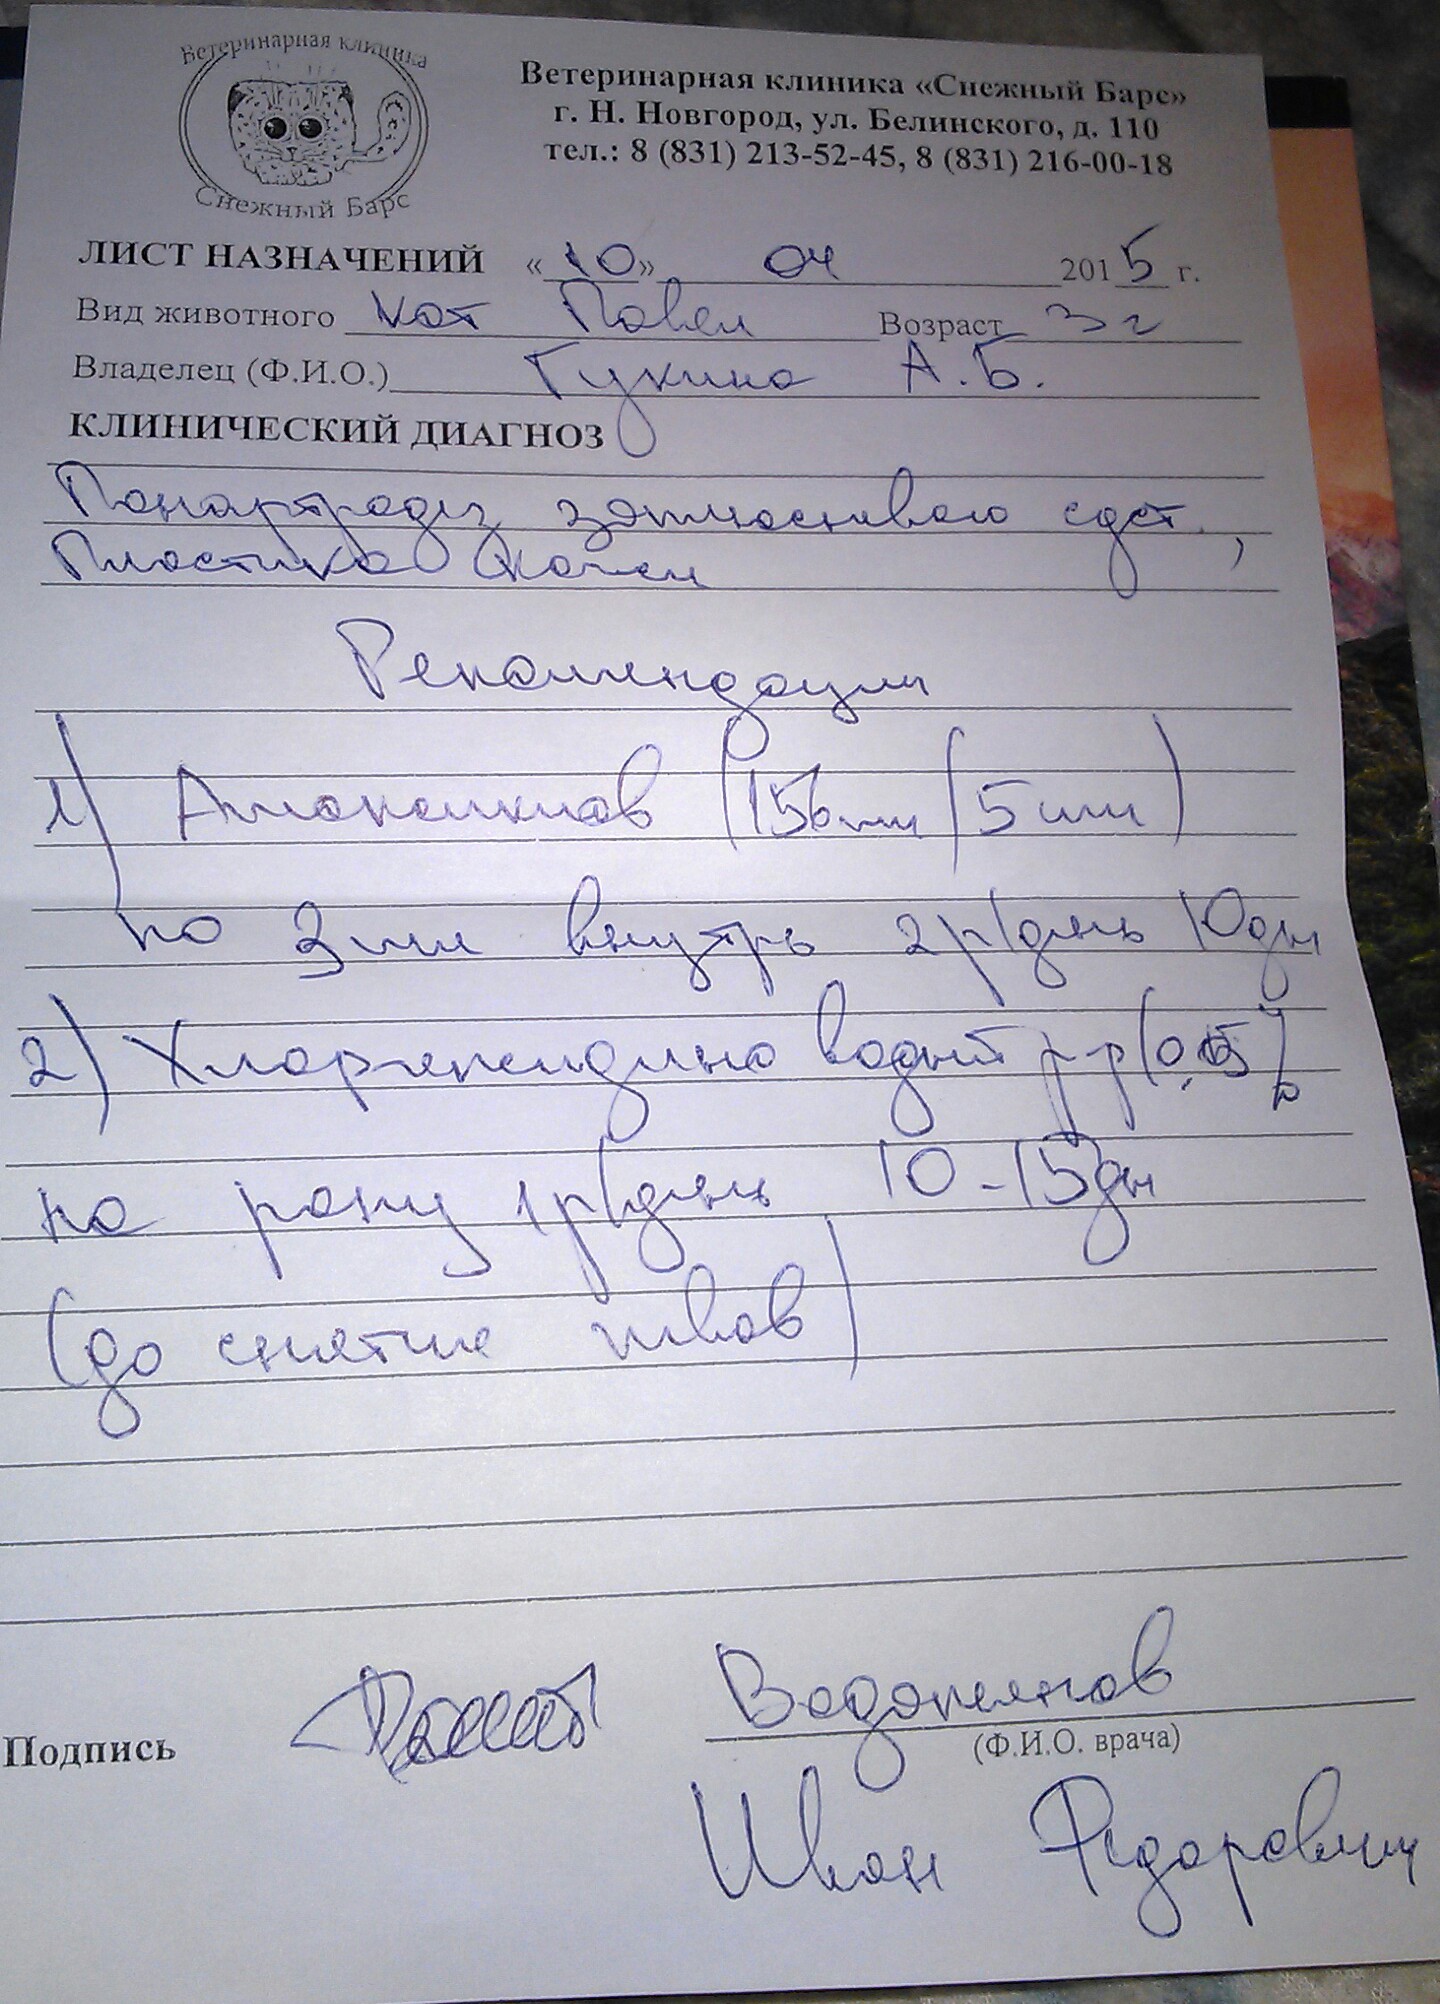 Ветеринарная клиника
Снежный Барс
Ветеринарная клиника «Снежный Барс»
г. Н. Новгород, ул. Белинского, д. 110
тел.: 8 (831) 213-52-45, 8 (831) 216-00-18
ЛИСТ НАЗНАЧЕНИЙ «10» 04 2015 г.
Вид животного Кот Павел Возраст 3 г
Владелец (Ф.И.О.) Гукина А.Б.
КЛИНИЧЕСКИЙ ДИАГНОЗ
Панартродез запястного суст.,
Пластика кожи
Рекомендации
1) Амоксиклав (156мг/5мл)
по 3 мл внутрь 2 р/день 10 дн
2) Хлоргексидина водный р-р (0,05%
на рану 1 р/день 10-15 дн
(до снятия швов)
Подпись Водопьянов
(Ф.И.О. врача)
Иван Федорович